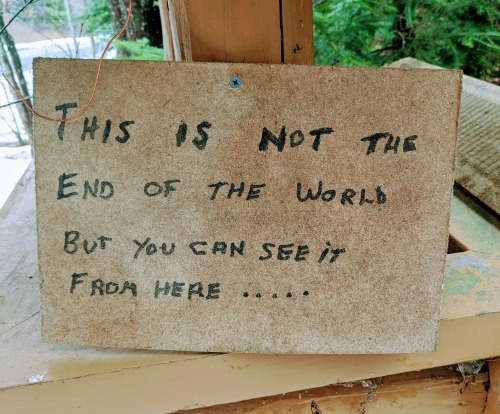 THIS IS NOT THE
END OF THE WORLD
BUT YOU CAN SEE iT
FROM HERE .....